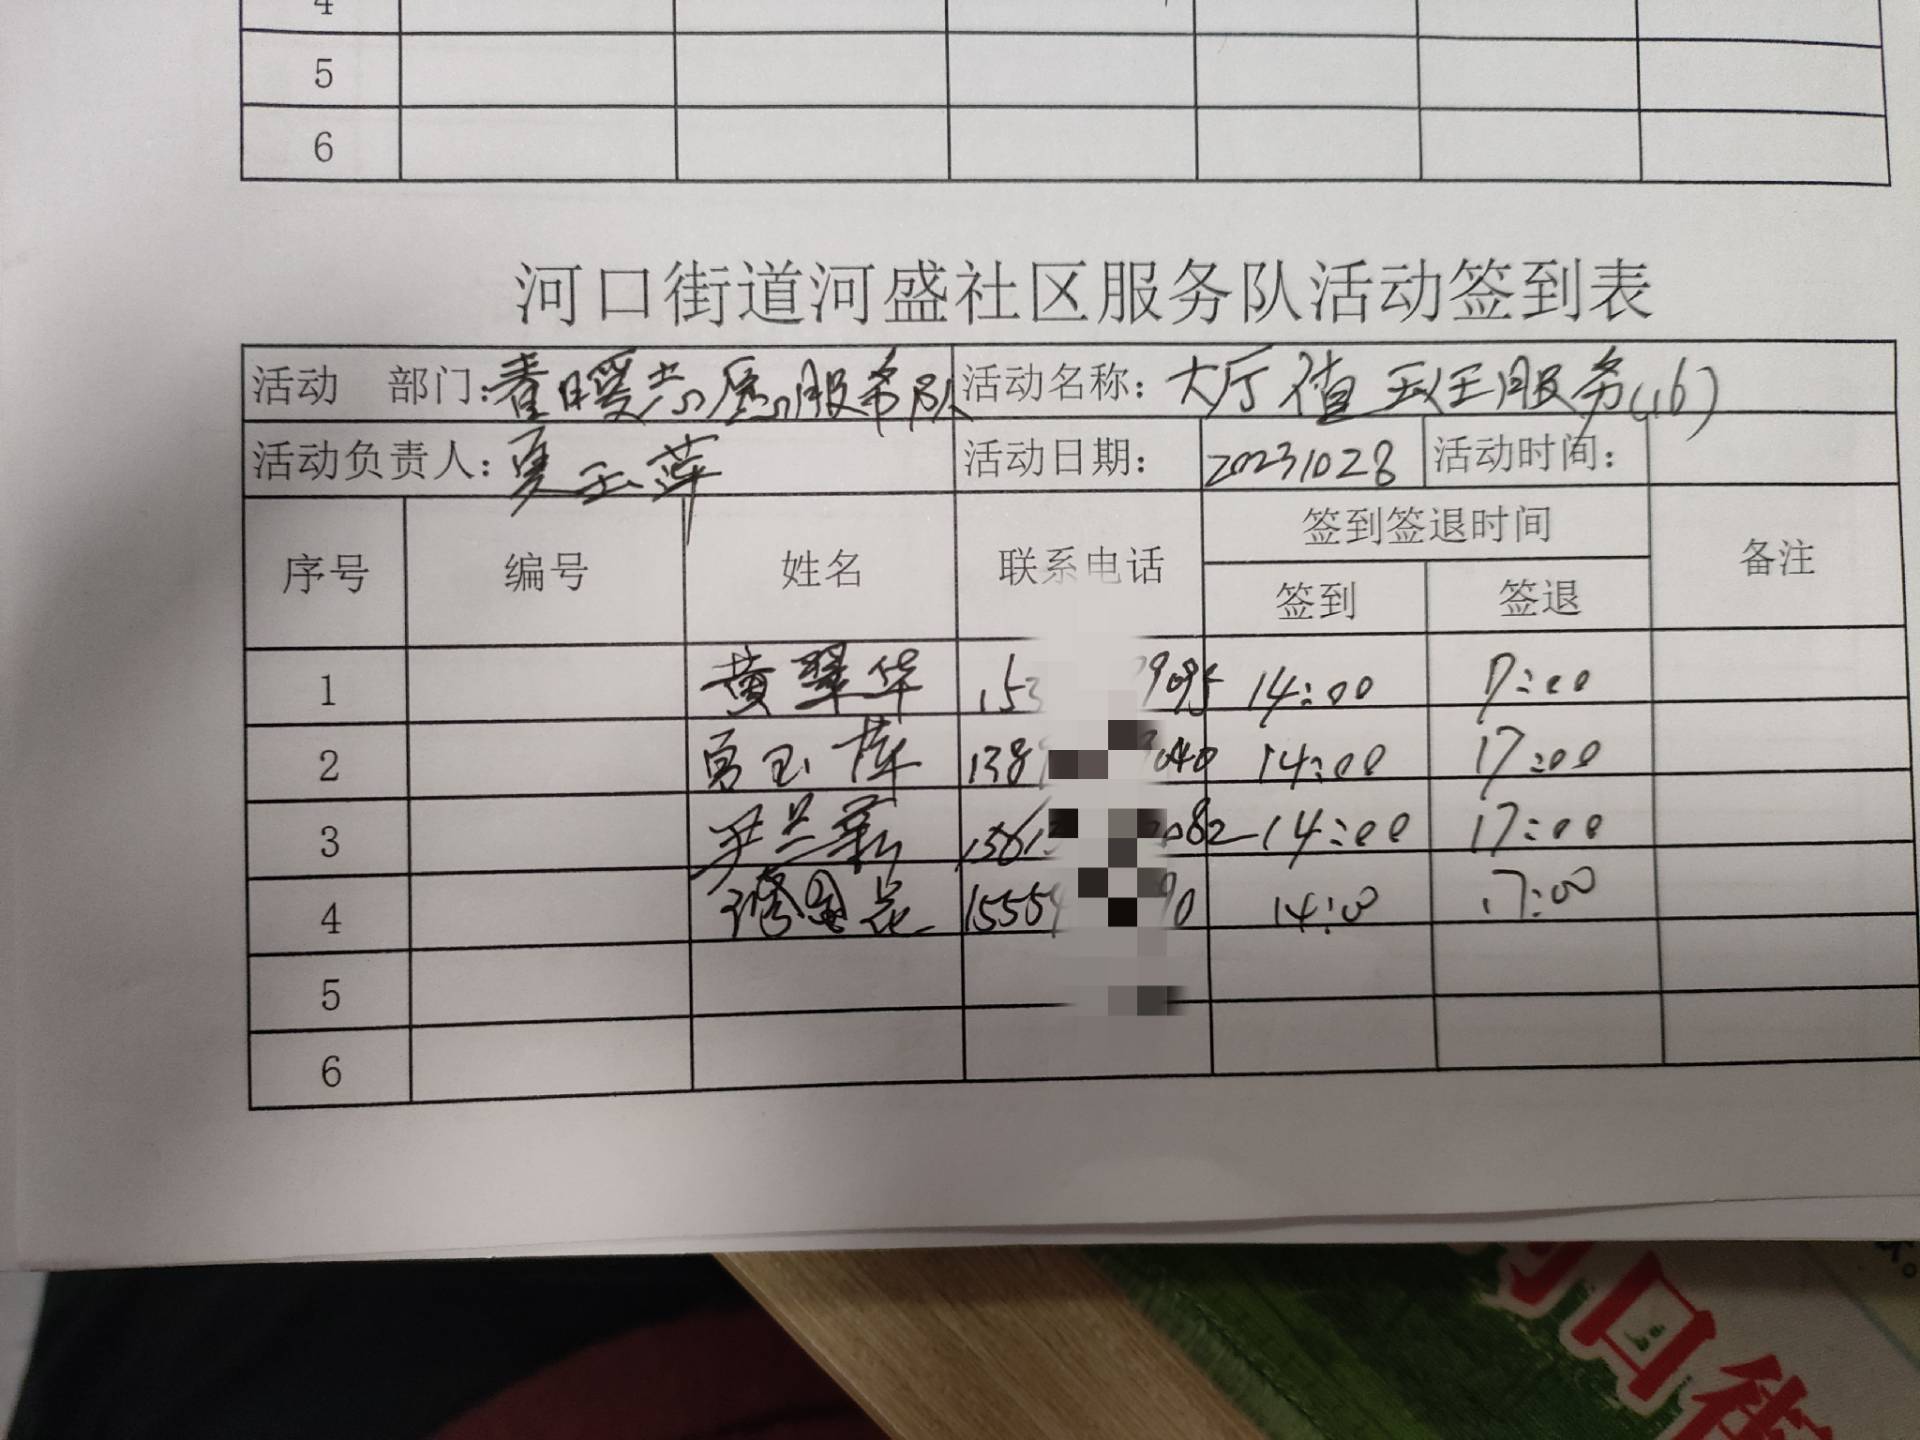 4
5
6
河口街道河盛社区服务队活动签到表
活动 部门：春暖志愿服务队 活动名称：大厅值班服务(16)
活动负责人：夏玉萍 活动日期：20231028 活动时间：
序号 编号 姓名 联系电话 签到签退时间 备注
签到 签退
1 黄翠华 153 9095 14:00 17:00
2 夏玉萍 138 040 14:00 17:00
3 尹兰 1561 082 14:00 17:00
4 15554 90 14:00 17:00
5
6
口街